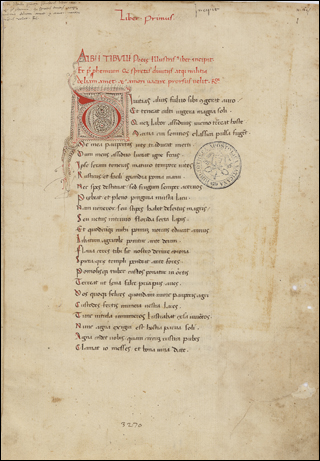 Liber primus
ALBII TIBULLI Poete Illustris liber incipit
spretis divitiis atque militia
amet & amori vacare prorsus velit
Divitias alius fulvo sibi congerat auro
Et teneat culti iugera magna soli
Quem labor assiduus vicino terreat hoste
Martia cui somnos classica pulsa fugent
Me mea paupertas vite traducat inerti
Dum meus assiduo luceat igne focus
Ipse seram teneras maturo tempore vites
Rusticus et facili grandia poma manu
Nec spes destituat sed frugum semper acervos
Prebeat et pleno pinguia musta lacu
Nam veneror seu stipes habet desertus in agris
Seu vetus in trivio florida serta lapis
Et quodcunque mihi pomum novus educat annus
Libatum agricole ponitur ante deum
Flava ceres tibi sit nostro de rure corona
Spicea que templi pendeat ante fores
Pomosisque ruber custos ponatur in ortis
Terreat ut seva falce priapus aves
Vos quoque felices quondam nunc pauperis agri
Custodes fertis munera vestra Lares
Tunc vitula innumeros lustrabat cesa iuvencos
Nunc agna exigui est hostia parva soli
Agna cadet vobis quam circum rustica pubes
Clamet io messes et bona vina date.
3270